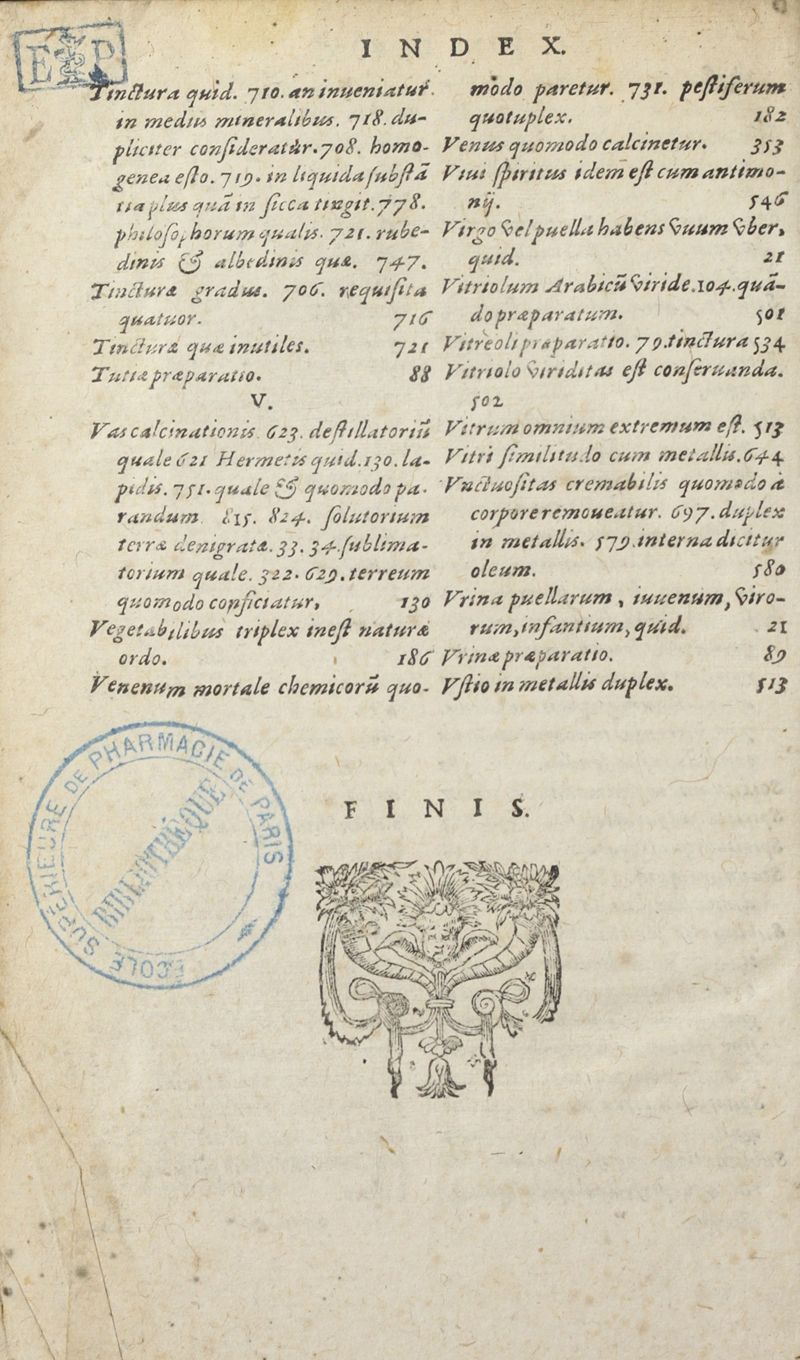 INDEX.
E P
Tinctura quid. 710. an inueniatur
in mediis mineralibus. 718. du-
pliciter consideratur. 708. homo-
genea esto. 719. in liquida substā
tia plus quā in sicca tingit. 778.
philosophorum qualis. 721. rube-
dinis & albedinis quæ. 747.
Tincturæ gradus. 706. requisita
quatuor. 716
Tincturæ quæ inutiles. 721
Tutiæ præparatio. 88
V.
Vas calcinationis 623. destillatoriū
quale 621 Hermetis quid. 130. la-
pidis. 751. quale & quomodo pa-
randum 815. 824. solutorium
terræ denigratæ. 33. 34. sublima-
torium quale. 322. 629. terreum
quomodo conficiatur, 130
Vegetabilibus triplex inest naturæ
ordo. 186
Venenum mortale chemicorū quo-
modo paretur. 731. pestiferum
quotuplex. 182
Venus quomodo calcinetur. 353
Viui spiritus idem est cum antimo-
nij. 546
Virgo vel puella habens vuum vber,
quid. 21
Vitriolum Arabicū viride. 104. quā-
do præparatum. 501
Vitreoli præparatio. 79. tinctura 534
Vitriolo viriditas est conseruanda.
502
Vitrum omnium extremum est. 513
Vitri similitudo cum metallis. 644
Vnctuositas cremabilis quomodo à
corpore remoueatur. 697. duplex
in metallis. 579. interna dicitur
oleum. 580
Vrina puellarum, iuuenum, viro-
rum, infantium, quid. 21
Vrinæ præparatio. 89
Vstio in metallis duplex. 513
FINIS.
ECOLE SUPÉRIEURE DE PHARMACIE DE PARIS
BIBLIOTHÈQUE